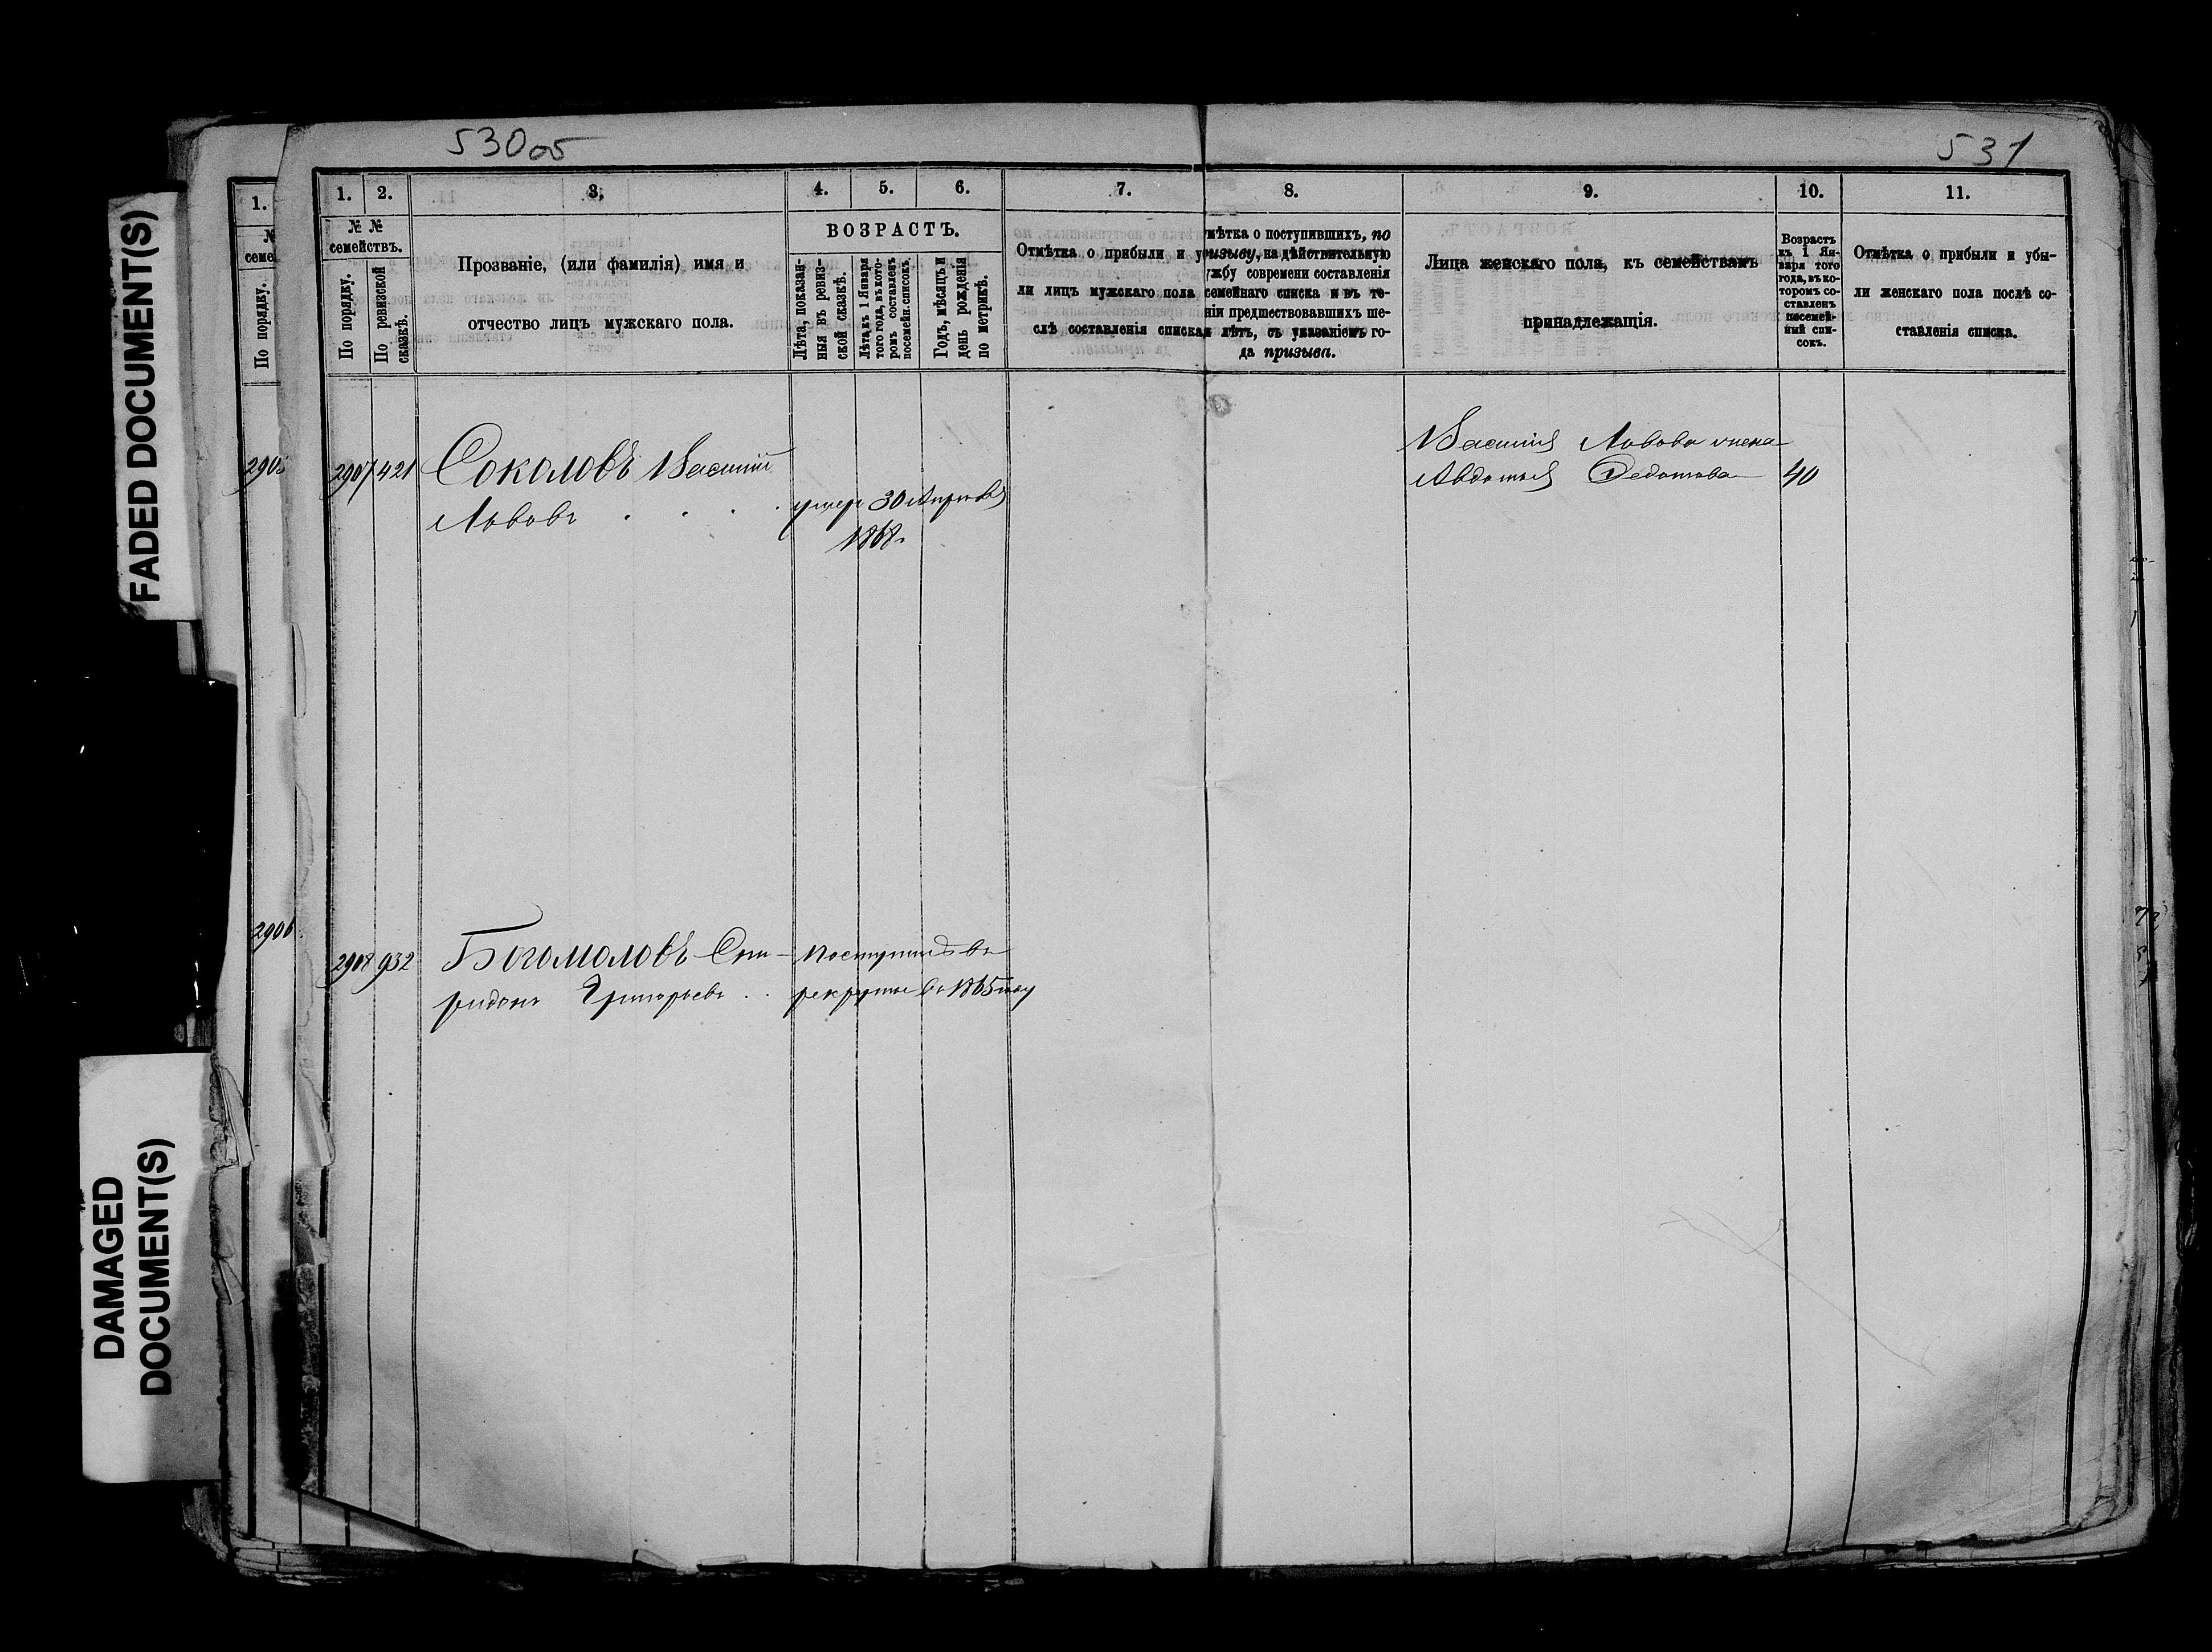 530об
531
FADED DOCUMENT(S)
DAMAGED
DOCUMENT(S)
1.
2906
1. 2. 3. 4. 5. 6. 7. 8. 9. 10. 11.
№ №
семействъ.
По порядку.
По ревизской
сказкѣ.
Прозваніе, (или фамилія) имя и
отчество лицъ мужскаго пола.
ВОЗРАСТЪ.
Лѣта, показан-
ныя въ ревиз-
ской сказкѣ.
Лѣта къ 1 Января
того года, въ кото-
ромъ составленъ
посемейн. списокъ.
Годъ, мѣсяцъ и
день рожденія
по метрикѣ.
Отмѣтка о прибыли и у
ли лицъ мужскаго пола
слѣ составленія списка
мѣтка о поступившихъ, по
ризыву, на дѣйствительную
жбу современи составленія
семейнаго списка и въ те-
ніи предшествовавшихъ ше-
лѣтъ, съ указаніемъ го-
да призыва.
Лица женскаго пола, къ семействамъ
принадлежащія.
Возрастъ
къ 1 Ян-
варя того
года, въ ко-
торомъ со-
ставленъ
посемей-
ный спи-
сокъ.
Отмѣтка о прибыли и убы-
ли женскаго пола послѣ со-
ставленія списка.
2907 421 Соколовъ Василий
Львовъ . . . . умеръ 30 Апрѣля
1868.
Василія Львова жена
Авдотья Федотова 40
2908 932 Богомоловъ Спи-
ридонъ Григорьевъ . .
поступилъ въ
рекруты въ 1865 году